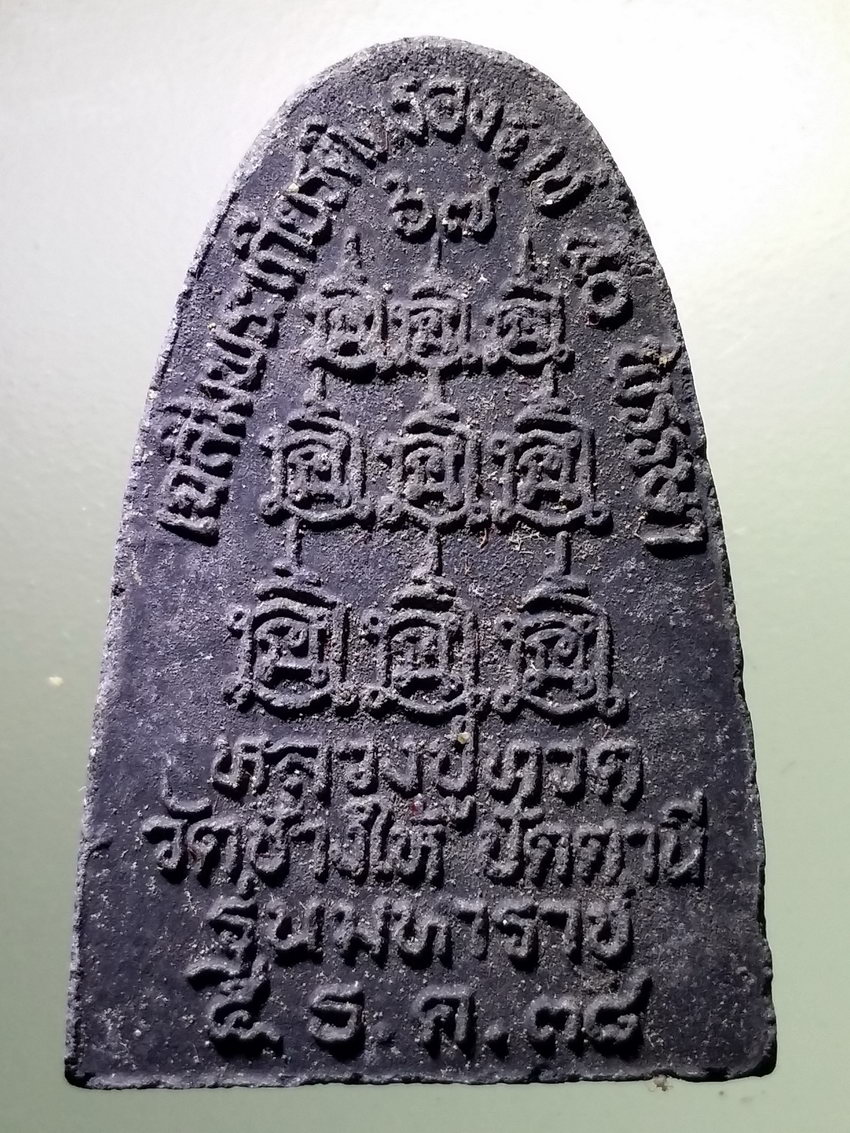 เฉลิมพระเกียรติ ครองราชย์ ๕๐ พรรษา
๖๗
หลวงปู่ทวด
วัดช้างให้ ปัตตานี
รุ่นมหาราช
๕ ธ.ค.๓๘